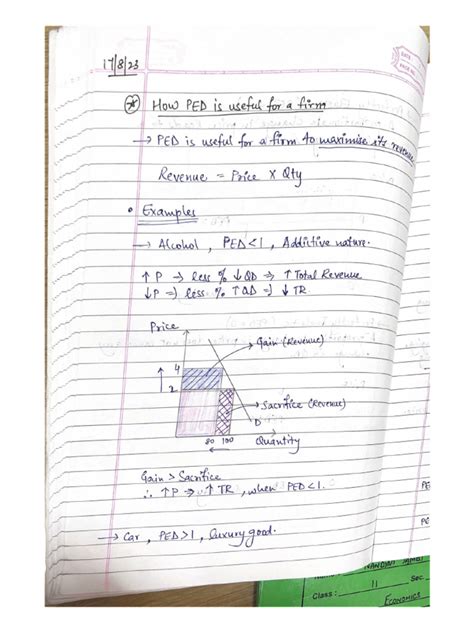 17/8/23
DATE
PAGE NO.
How PED is useful for a firm
→ PED is useful for a firm to maximise its revenue.
Revenue = Price X Qty
• Examples
→ Alcohol , PED<1 , Addictive nature.
↑P → less % ↓QD ⇒ ↑ Total Revenue
↓P ⇒ less % ↑QD ⇒ ↓ TR.
Price
Gain (Revenue)
4
2
Sacrifice (Revenue)
D
80 100 Quantity
Gain > Sacrifice
∴ ↑P → ↑ TR , when PED<1.
→ Car , PED>1 , luxury good.
Class: 11 Sec.
ECONOMICS